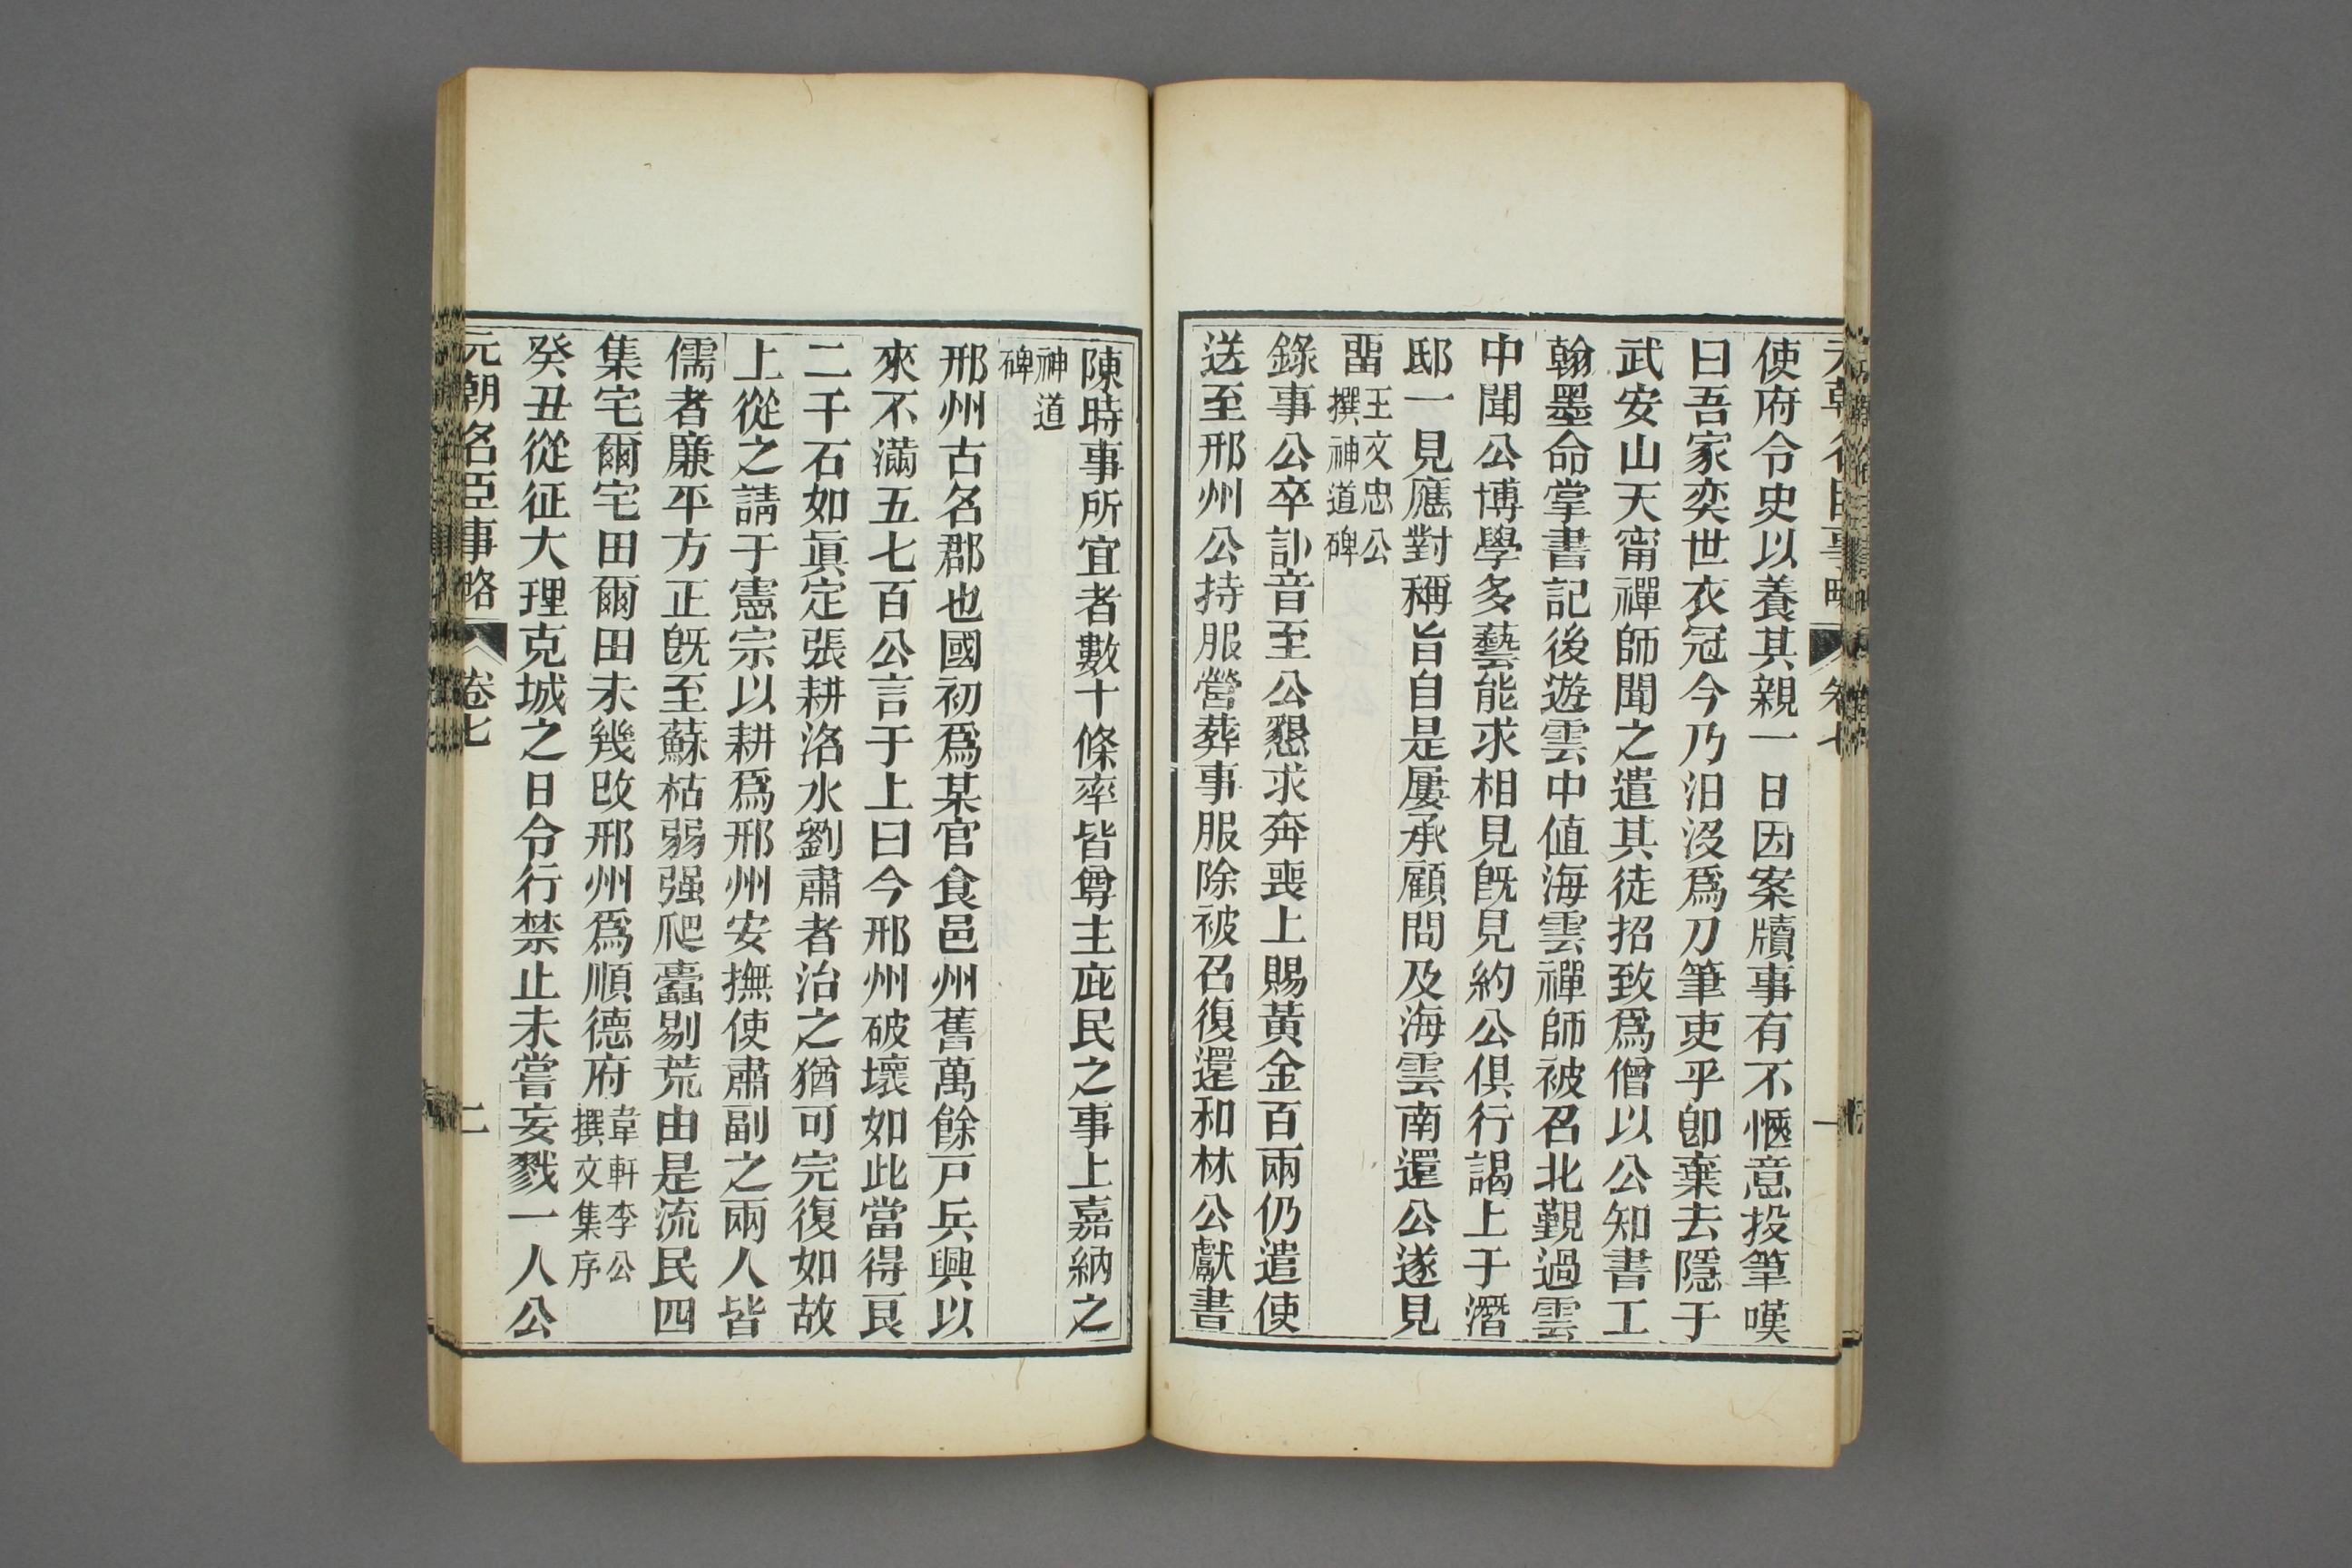 使府令史以養其親一日因案牘事有不愜意投筆嘆
曰吾家奕世衣冠今乃汨沒爲刀筆吏乎卽棄去隱于
武安山天甯禪師聞之遣其徒招致爲僧以公知書工
翰墨命掌書記後遊雲中値海雲禪師被召北覲過雲
中聞公博學多藝能求相見旣見約公俱行謁上于潛
邸一見應對稱旨自是屢承顧問及海雲南還公遂見
畱王文忠公撰神道碑
錄事公卒訃音至公懇求奔喪上賜黃金百兩仍遣使
送至邢州公持服營葬事服除被召復還和林公獻書
陳時事所宜者數十條率皆尊主庇民之事上嘉納之
神道碑
邢州古名郡也國初爲某官食邑州舊萬餘戸兵興以
來不滿五七百公言于上曰今邢州破壞如此當得良
二千石如眞定張耕洛水劉肅者治之猶可完復如故
上從之請于憲宗以耕爲邢州安撫使肅副之兩人皆
儒者廉平方正旣至蘇枯弱强爬蠹剔荒由是流民四
集宅爾宅田爾田未幾改邢州爲順德府韋軒李公撰文集序
癸丑從征大理克城之日令行禁止未嘗妄戮一人公
元朝名臣事略
卷七
二